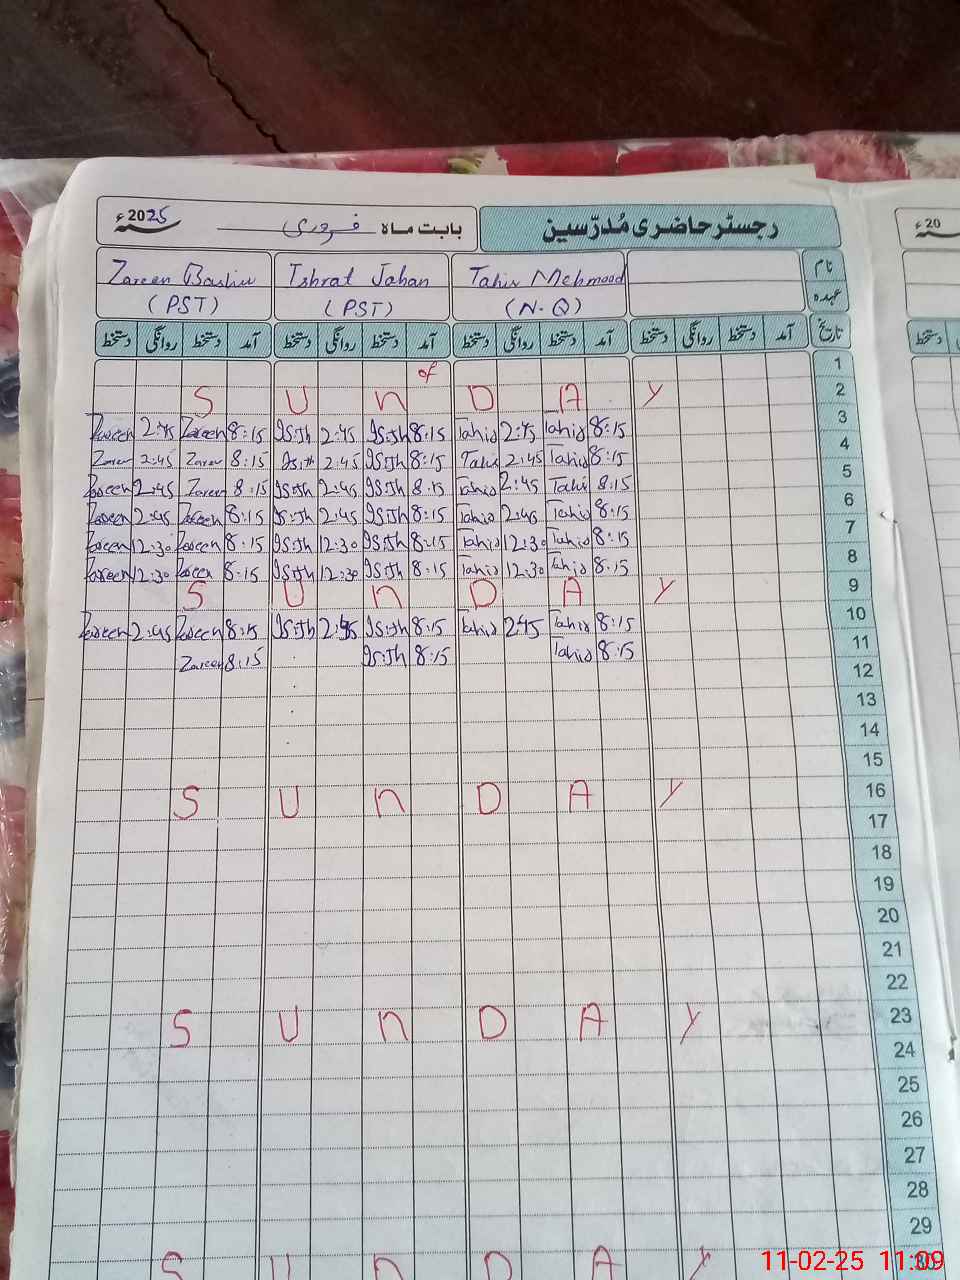 رجسٹر حاضری مُدرّسین بابت ماہ فروری سنہ 2025ء
20ء
نام Tahir Mehmood Ishrat Jahan Zareen Bashir
عہدہ (N-Q) (PST) (PST)
تاریخ آمد دستخط روانگی دستخط آمد دستخط روانگی دستخط آمد دستخط روانگی دستخط آمد دستخط روانگی دستخط
دستخط
of 1
S U n D A Y 2
Zareen 2:45 Zareen 8:15 2:45 8:15 Tahir 2:45 Tahir 8:15 3
Zareen 2:45 Zareen 8:15 2:45 8:15 Tahir 2:45 Tahir 8:15 4
Zareen 2:45 Zareen 8:15 2:45 8:15 Tahir 2:45 Tahir 8:15 5
Zareen 2:45 Zareen 8:15 2:45 8:15 Tahir 2:45 Tahir 8:15 6
Zareen 12:30 Zareen 8:15 12:30 8:15 Tahir 12:30 Tahir 8:15 7
Zareen 12:30 Zareen 8:15 12:30 8:15 Tahir 12:30 Tahir 8:15 8
S U n D A Y 9
Zareen 2:45 Zareen 8:15 2:45 8:15 Tahir 2:45 Tahir 8:15 10
Zareen 8:15 8:15 Tahir 8:15 11
12
13
14
15
S U n D A Y 16
17
18
19
20
21
22
S U n D A Y 23
24
25
26
27
28
29
S U n D A Y 30
11-02-25 11:09